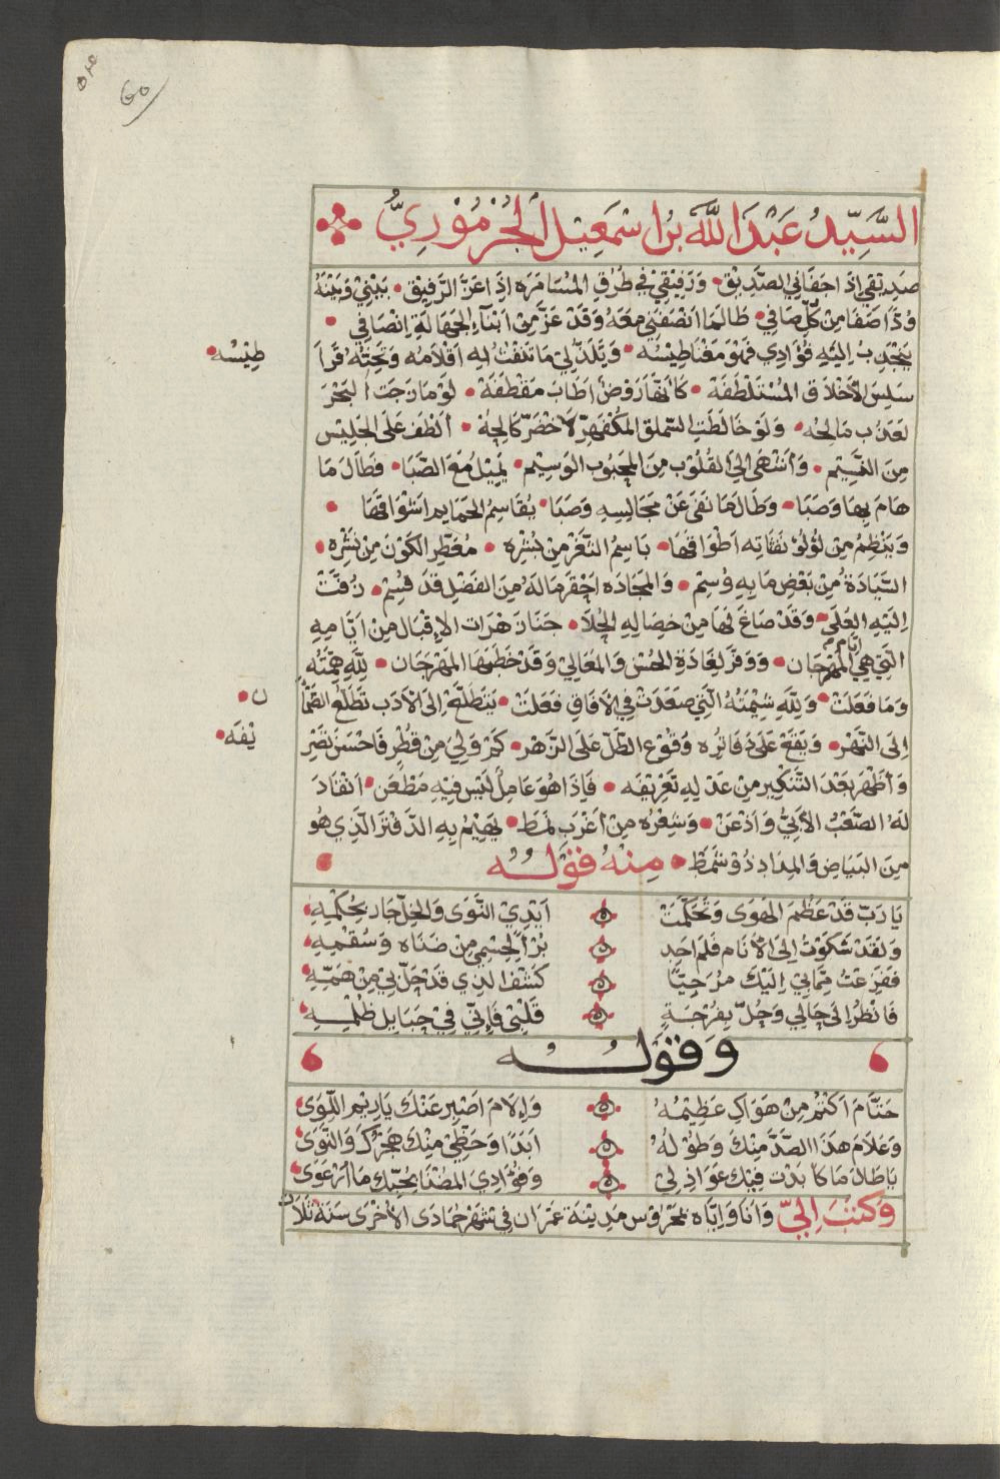 السَّيِّدُ عَبْدُ اللَّهِ بْنُ اسْمَعِيلَ الْجُرْمُوْزِيُّ
صَدِيْقِي اِذَا جَفَانِي الصَّدِيْق وَرَفِيْقِيْ فِي طُرُقِ الْمُسَامَرَةِ اِذَا عَزَّ الرَّفِيْق بَيْنِيْ وَبَيْنَهُ
وُدًّا صَفَا مِنْ كُلِّ صَافِي طَالَمَا اَنْصَفَنِيْ مَعَهُ وَقَدْ عَزَّ مِنْ اَبْنَاءِ الْجَهَالَةِ اِنْصَافِي
يَنْجَذِبُ اِلَيْهِ فُؤَادِي فَهُوَ مَغْنَاطِيْسُه وَيَلَذُّ لِيْ مَا نَفَثَتْ بِهِ اَقْلَامُه
طِيْسُه
سَلِسَ الْاَخْلَاقِ الْمُسْتَلْطَفَة كَاَنَّهَا رَوْضٌ اَطَابَ مَقْطَفَة لَوْ مَازَجَتْ الْبَحْرَ
لَعَذُبَ مَالِحُه وَلَوْ خَالَطَتِ الْمُكْفَهِرَّ لَاخْضَرَّ كَالِحُهْ اَلْطَفُ عَلَى الْجَلِيْسِ
مِنَ النَّسِيْم وَاَشْهَى اِلَى الْقُلُوْبِ مِنَ الْمَحْبُوبِ الْوَسِيْم يَمِيْلُ مَعَ الصَّبَا فَطَالَ مَا
هَامَ بِهَا وَصَبَا وَطَالَمَا نَفَى عَنْ مَجَالِسِهِ وَصَبَا يُقَاسِمُ الْحَمَايِمَ اَشْوَاقَهَا
وَيَنْظِمُ مِنْ لُؤْلُؤِ نَفَثَاتِهِ اَطْوَاقَهَا بَاسِمُ الثَّغْرِ مِنْ بُشْرِه مُعَطِّرُ الْكَوْنِ مِنْ نَشْرِه
السِّيَادَةُ مِنْ بَعْضِ مَا بِهِ وُسِمْ وَالْمَجَادَه اَحْقَرُ مَا لَهُ مِنَ الْفَضْلِ قَدْ قُسِمْ زُفَّتْ
اِلَيْهِ الْعُلَى وَقَدْ صَاغَ لَهَا مِنْ خِصَالِهِ الْحُلَا جَنَا زَهَرَاتِ الْاِقْبَالِ مِنْ اَيَّامِهِ
الَّتِيْ هِيَ اَيَّامُ الْمَهْرَجَان وَوَفَّرَ لِغَادَةِ الْحُسْنِ وَالْمَعَالِيْ وَقَدْ خَطَبَهَا الْمَهْرَ جَان لِلَّهِ هِمَّتُه
وَمَا فَعَلَتْ وَلِلَّهِ شِيْمَتُهُ الَّتِيْ صَعَدَتْ فِي الْاَفَاقِ فَعَلَتْ يَتَطَلَّعُ اِلَى الْاَدَبِ تَطَلُّعَ الظَّمْأَ
ن
اِلَى النَّهْر وَيَقَعُ عَلَى دَفَاتِرِه وُقُوْعَ الطَّلِّ عَلَى الزَّهْر كَمْ وَلِيَ مِنْ قُطْرٍ فَاَحْسَنَ تَصْرِ
يْفَه
وَاَظْهَرَ بَعْدَ التَّنْكِيرِ مِنْ عَدْلِهِ تَعْرِيْفَه فَاِذَا هُوَ عَامِلٌ لَيْسَ فِيْهِ مَطْعَن اَنْقَادَ
لَهُ الصَّعْبُ الْاَبِيُّ وَاَذْعَن وَشِعْرُه مِنْ اَغْرَبِ نَمَط يَهِيْمُ بِهِ الدَّفْتَرُ الَّذِي هُوَ
مِنَ الْبَيَاضِ وَالْمِدَادِ ذُوْ شَمَط مِنْهُ قَوْلُهُ
يَا رَبِّ قَدْ عَظُمَ الْهَوَى وَتَحَكَّمَتْ اَيْدِيْ النَّوَى وَالْخِلُّ جَارَ بِحُكْمِهِ
وَلَقَدْ شَكَوْتُ اِلَى الْاَنَامِ فَلَمْ اَجِدْ بُرْاً لِجِسْمِيْ مِنْ ضَنَاه وَسُقْمِهِ
فَفَزِعْتُ مِمَّا بِيْ اِلَيْكَ مُرَجِّيًا كَشْفَ الَّذِي قَدْ جَلَّ بِيْ مِنْ هَمِّهِ
فَانْظُرْ اِلَى حَالِي وَجُلَّ بِفُرْجَةٍ قَلْبِيْ فَاِنِّي فِيْ حَبَايِلِ ظُلْمِهِ
وَقَوْلُهُ
حَتَّامَ اَكْتُمُ مِنْ هَوَاكِ عَظِيْمَهُ وَاِلَامَ اَصْبِرُ عَنْكَ يَارِيْمَ اللِّوَى
وَعَلَامَ هَذَا الصَّدُّ مِنْكَ وَطُوْلُهُ اَبَدًا وَحَظِّيْ مِنْكَ هَجْرُكَ وَالنَّوَى
يَا طَالَ مَا كَابَدْتُ فِيْكَ عَوَاذِلِيْ وَفُؤَادِيَ الْمُضْنَا بِحُبِّكَ مَا ارْعَوَى
وَكَتَبَ اِلَيَّ وَاَنَا وَاِيَّاه بِمَحْرُوْسِ مَدِيْنَةِ عَمْرَان فِيْ شَهْرِ جُمَادَى الْاُخْرَى سَنَةَ ثَلَاث